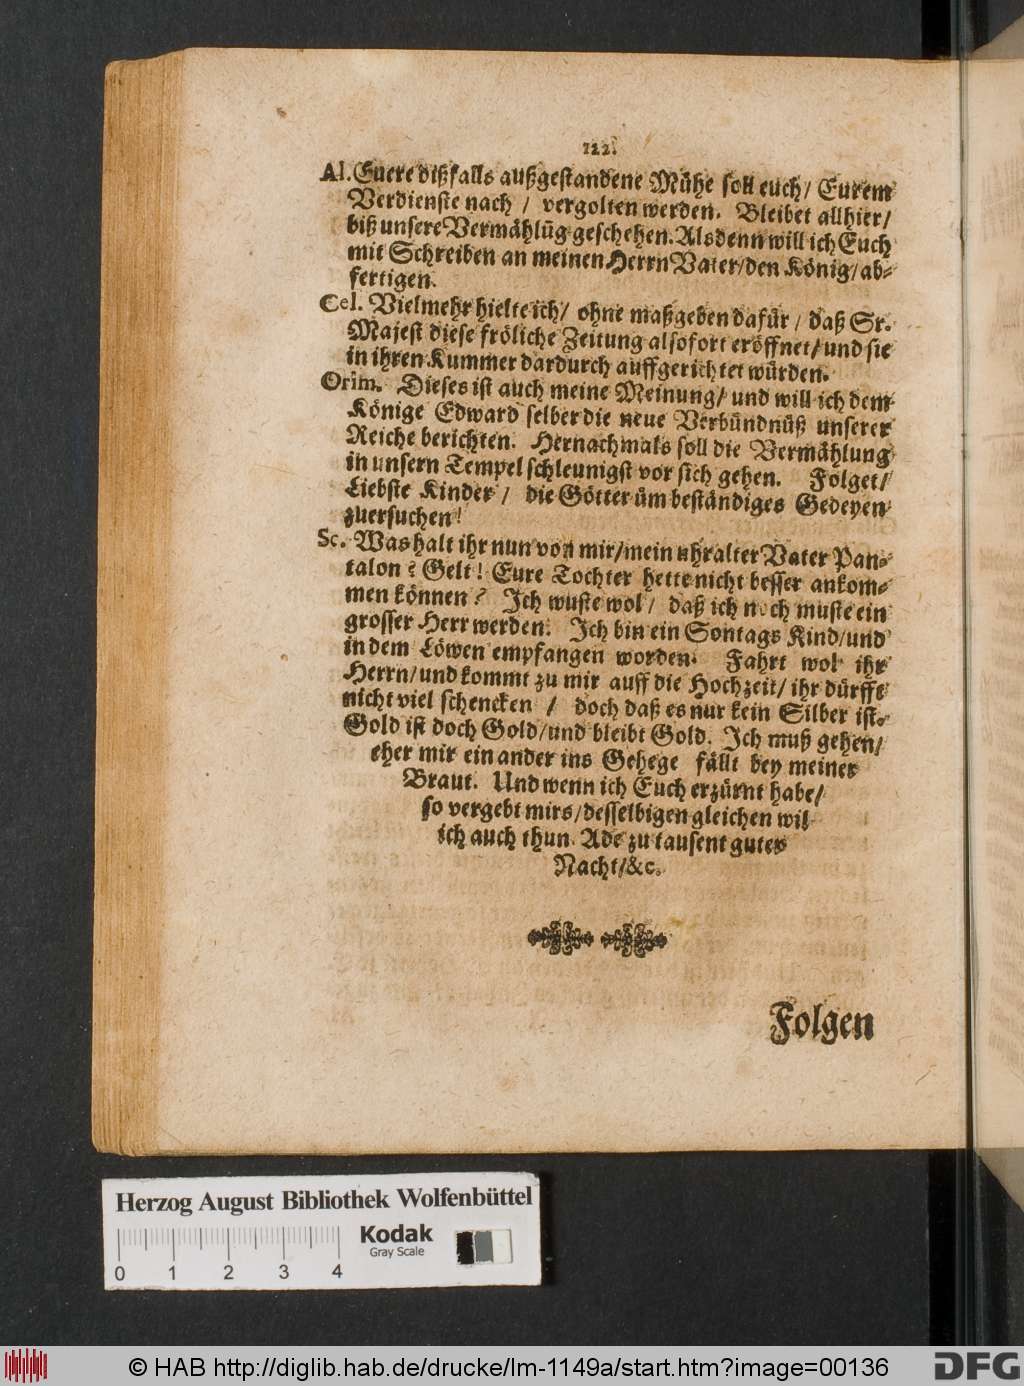 122.
Al. Euere dißfalls außgestandene Mühe soll euch/ Eurem
Verdienste nach / vergolten werden. Bleibet allhier/
biß unsere Vermählūg geschehen. Alsdenn will ich Euch
mit Schreiben an meinen Herrn Vater/den König/ab-
fertigen.
Cel. Vielmehr hielte ich/ ohne maßgeben dafür / daß Sr.
Majest diese fröliche Zeitung alsofort eröffnet/und sie
in ihren Kummer dardurch auffgerichtet würden.
Orim. Dieses ist auch meine Meinung/ und will ich dem
Könige Edward selber die neue Verbündnüß unserer
Reiche berichten. Hernachmals soll die Vermählung
in unsern Tempel schleunigst vor sich gehen. Folget/
Liebste Kinder / die Götter üm beständiges Gedeyen
zuersuchen!
Sc. Was halt ihr nun von mir/mein uhralter Vater Pan-
talon? Gelt! Eure Tochter hette nicht besser ankom-
men können? Ich wuste wol / daß ich noch muste ein
grosser Herr werden. Ich bin ein Sontags Kind/und
in dem Löwen empfangen worden. Fahrt wol ihr
Herrn/und kommt zu mir auff die Hochzeit/ ihr dürfft
nicht viel schencken / doch daß es nur kein Silber ist.
Gold ist doch Gold/und bleibt Gold. Ich muß gehen/
eher mir ein ander ins Gehege fällt bey meiner
Braut. Und wenn ich Euch erzürnt habe/
so vergebt mirs/desselbigen gleichen wil
ich auch thun. Ade zu tausent guter
Nacht/&c.
Folgen
Herzog August Bibliothek Wolfenbüttel
Kodak
Gray Scale
0 1 2 3 4
© HAB http://diglib.hab.de/drucke/lm-1149a/start.htm?image=00136
DFG